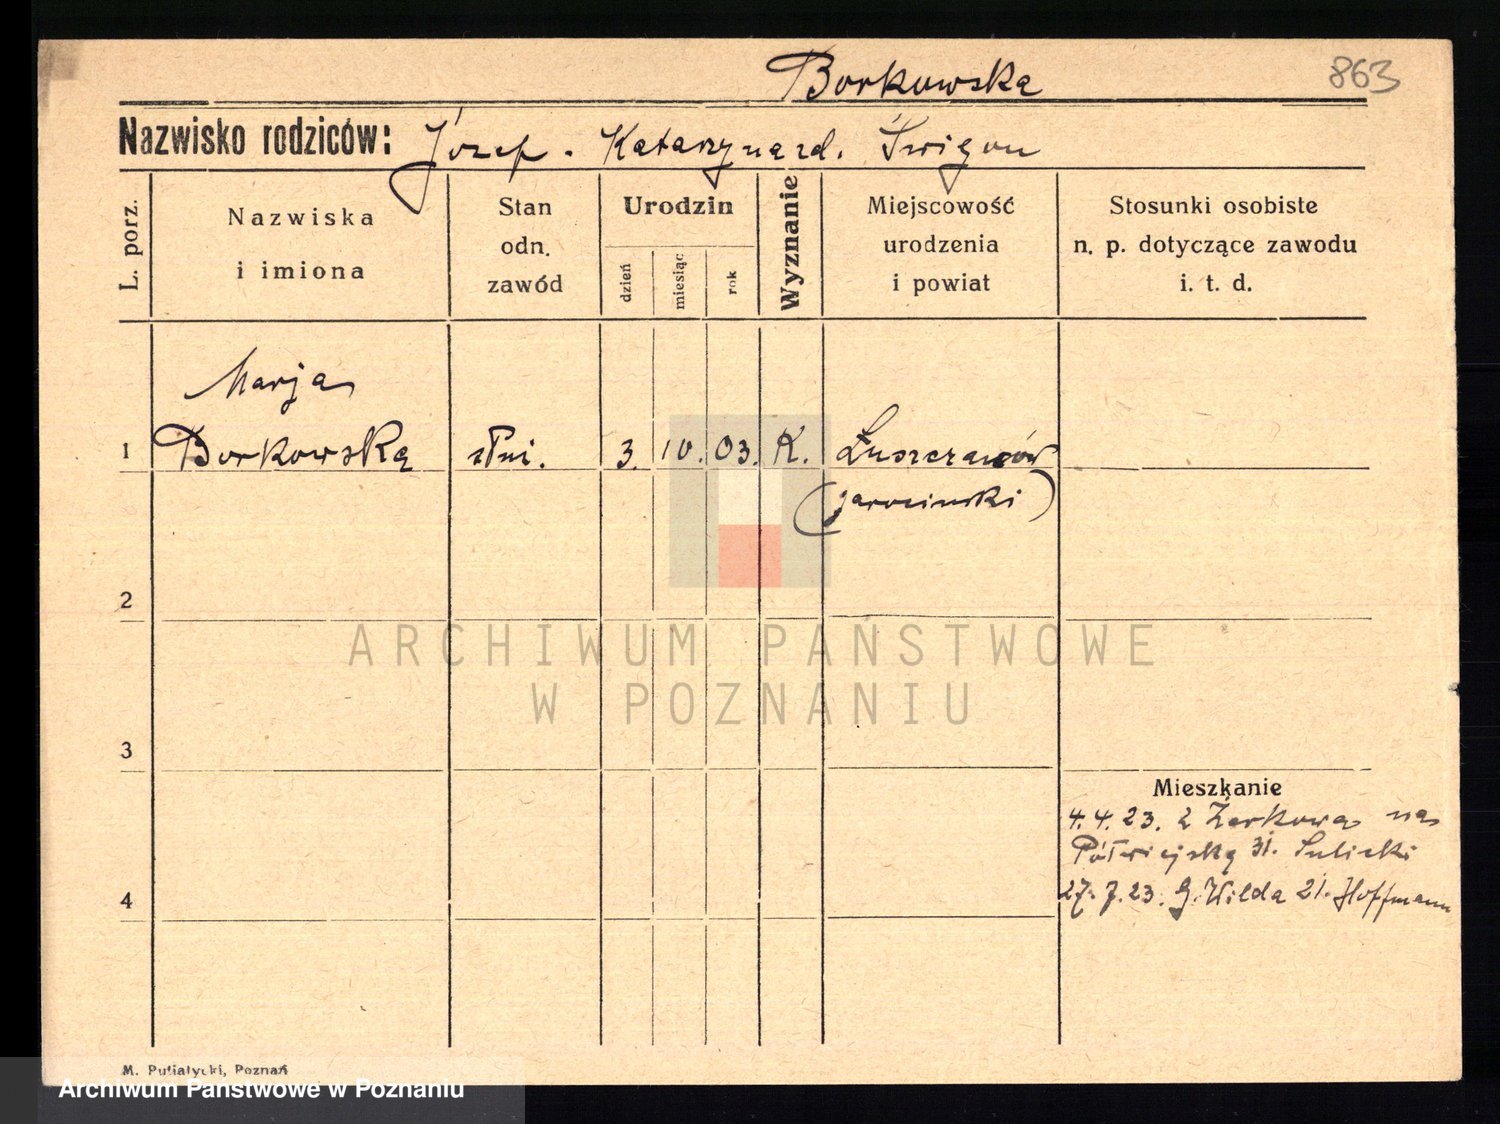 Borkowska 863
Nazwisko rodziców: Józef. Katarzyna zd. Świgoń
L. porz.
Nazwiska
i imiona
Stan
odn.
zawód
Urodzin
dzień
miesiąc
rok
Wyznanie
Miejscowość
urodzenia
i powiat
Stosunki osobiste
n. p. dotyczące zawodu
i. t. d.
Marja
1 Borkowska słui. 3. 10. 03. K. Łuszczanów
(jarociński)
2
ARCHIWUM PAŃSTWOWE
W POZNANIU
3
Mieszkanie
4. 4. 23. z Żerkowa na
Półwiejską 31. Sulicki
4
27. 7. 23. G. Wilda 21. Hoffmann
M. Putiatycki, Poznań
Archiwum Państwowe w Poznaniu